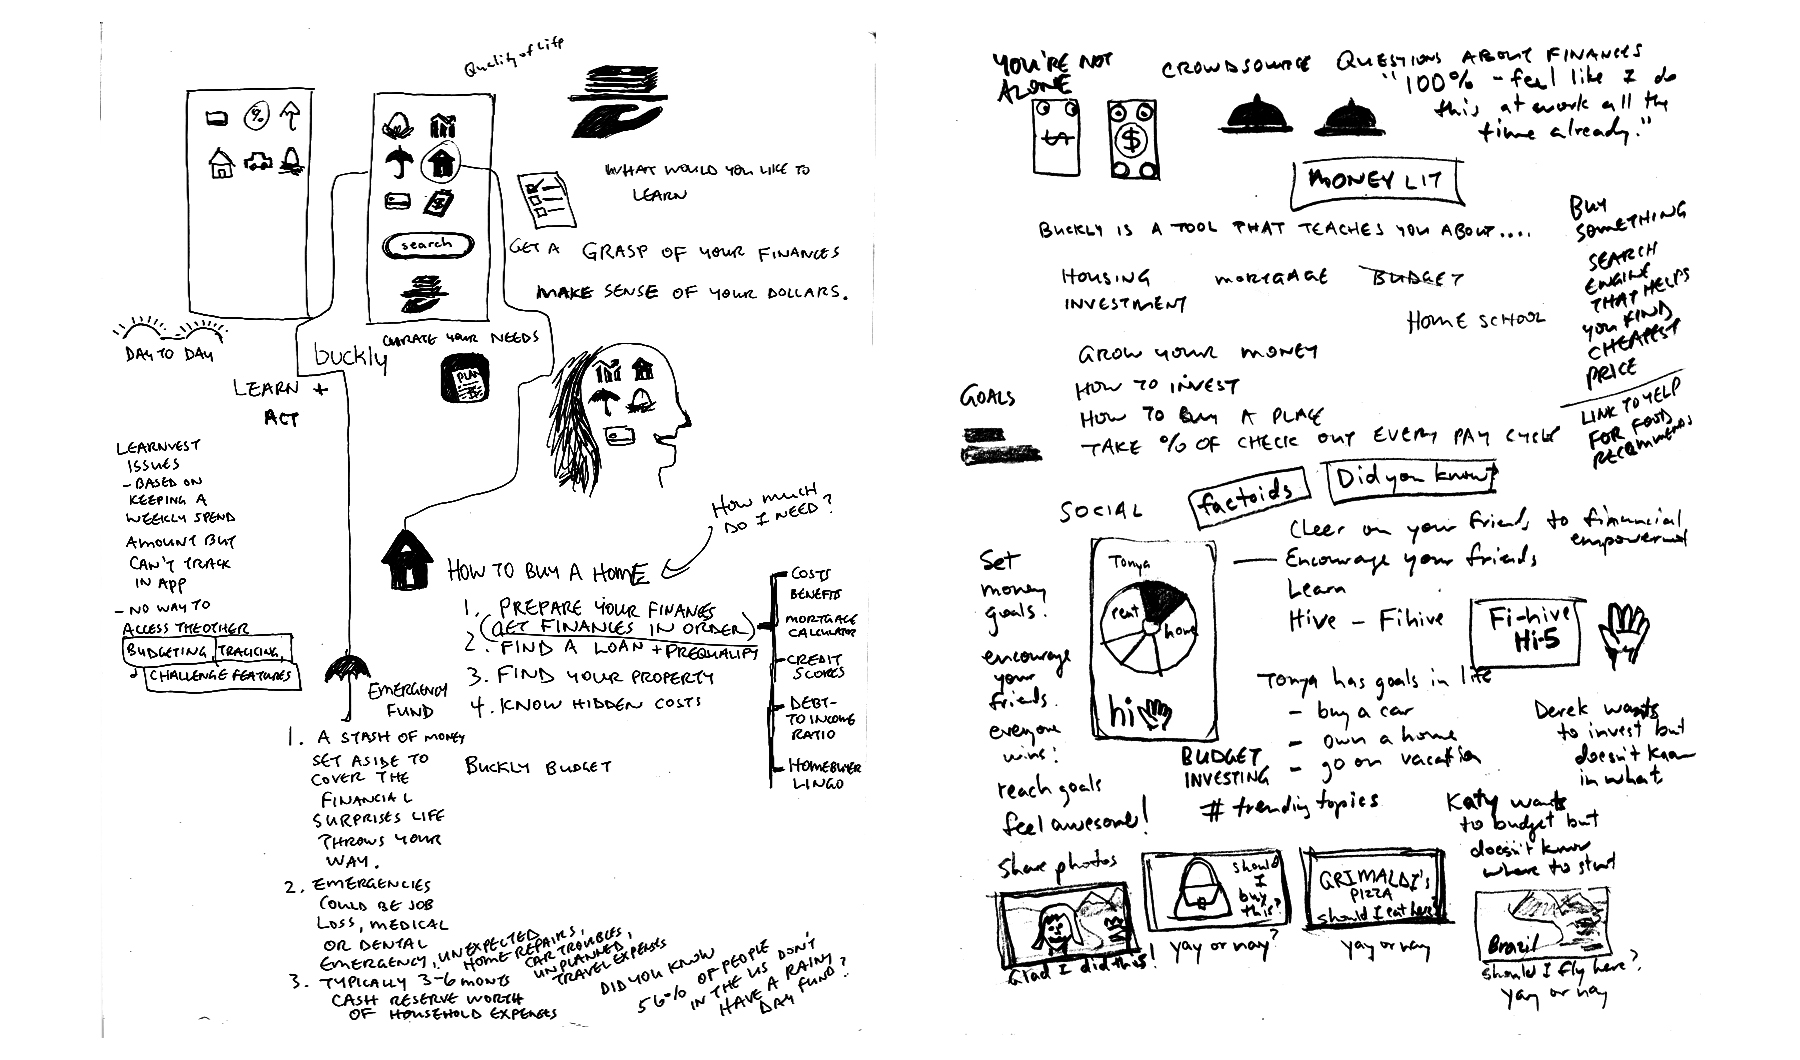 Quality of Life
%
$
search
WHAT WOULD YOU LIKE TO
LEARN
GET A GRASP OF YOUR FINANCES
MAKE SENSE OF YOUR DOLLARS.
DAY TO DAY
buckly
CURATE YOUR NEEDS
PLAN
LEARN +
ACT
LEARNVEST
ISSUES
- BASED ON
KEEPING A
WEEKLY SPEND
AMOUNT BUT
CAN'T TRACK
IN APP
- NO WAY TO
ACCESS THE OTHER
BUDGETING, TRACKING,
CHALLENGE FEATURES
HOW MUCH
DO I NEED?
HOW TO BUY A HOME
1. PREPARE YOUR FINANCES
(GET FINANCES IN ORDER)
2. FIND A LOAN + PREQUALIFY
3. FIND YOUR PROPERTY
4. KNOW HIDDEN COSTS
COSTS
BENEFITS
MORTGAGE
CALCULATOR
CREDIT
SCORES
DEBT-
TO INCOME
RATIO
HOMEBUYER
LINGO
BUCKLY BUDGET
EMERGENCY
FUND
1. A STASH OF MONEY
SET ASIDE TO
COVER THE
FINANCIAL
SURPRISES LIFE
THROWS YOUR
WAY.
2. EMERGENCIES
COULD BE JOB
LOSS, MEDICAL
OR DENTAL
EMERGENCY, UNEXPECTED
HOME REPAIRS,
CAR TROUBLES,
UNPLANNED
TRAVEL EXPENSES
3. TYPICALLY 3-6 MONTS
CASH RESERVE WORTH
OF HOUSEHOLD EXPENSES
DID YOU KNOW
56% OF PEOPLE DON'T
IN THE US
HAVE A RAINY
DAY FUND?
YOU'RE NOT
ALONE
CROWDSOURCE QUESTIONS ABOUT FINANCES
"100% - feel like I do
this at work all the
time already."
$
$
MONEY LIT
BUCKLY IS A TOOL THAT TEACHES YOU ABOUT....
HOUSING MORTGAGE BUDGET
INVESTMENT
HOME SCHOOL
GROW YOUR MONEY
HOW TO INVEST
HOW TO BUY A PLACE
TAKE % OF CHECK OUT EVERY PAY CYCLE
GOALS
BUY
SOMETHING
SEARCH
ENGINE
THAT HELPS
YOU FIND
CHEAPEST
PRICE
LINK TO YELP
FOR FOOD
RECOMMENDS
SOCIAL
factoids
Did you know?
Cheer on your friends to financial
empowerment
— Encourage your friends
Learn
Hive - Fihive
Fi-hive
Hi-5
Set
money
goals.
encourage
your
friends.
everyone
wins!
reach goals
feel awesome!
Tonya
rent
home
hi
Tonya has goals in life
- buy a car
- own a home
- go on vacation
BUDGET
INVESTING
# trending topics
Derek wants
to invest but
doesn't know
in what
Katy wants
to budget but
doesn't know
where to start
Share photos
Glad I did this!
should
I
buy
this?
yay or nay?
GRIMALDI's
PIZZA
should I eat here?
yay or nay
Brazil
should I fly here?
yay or nay